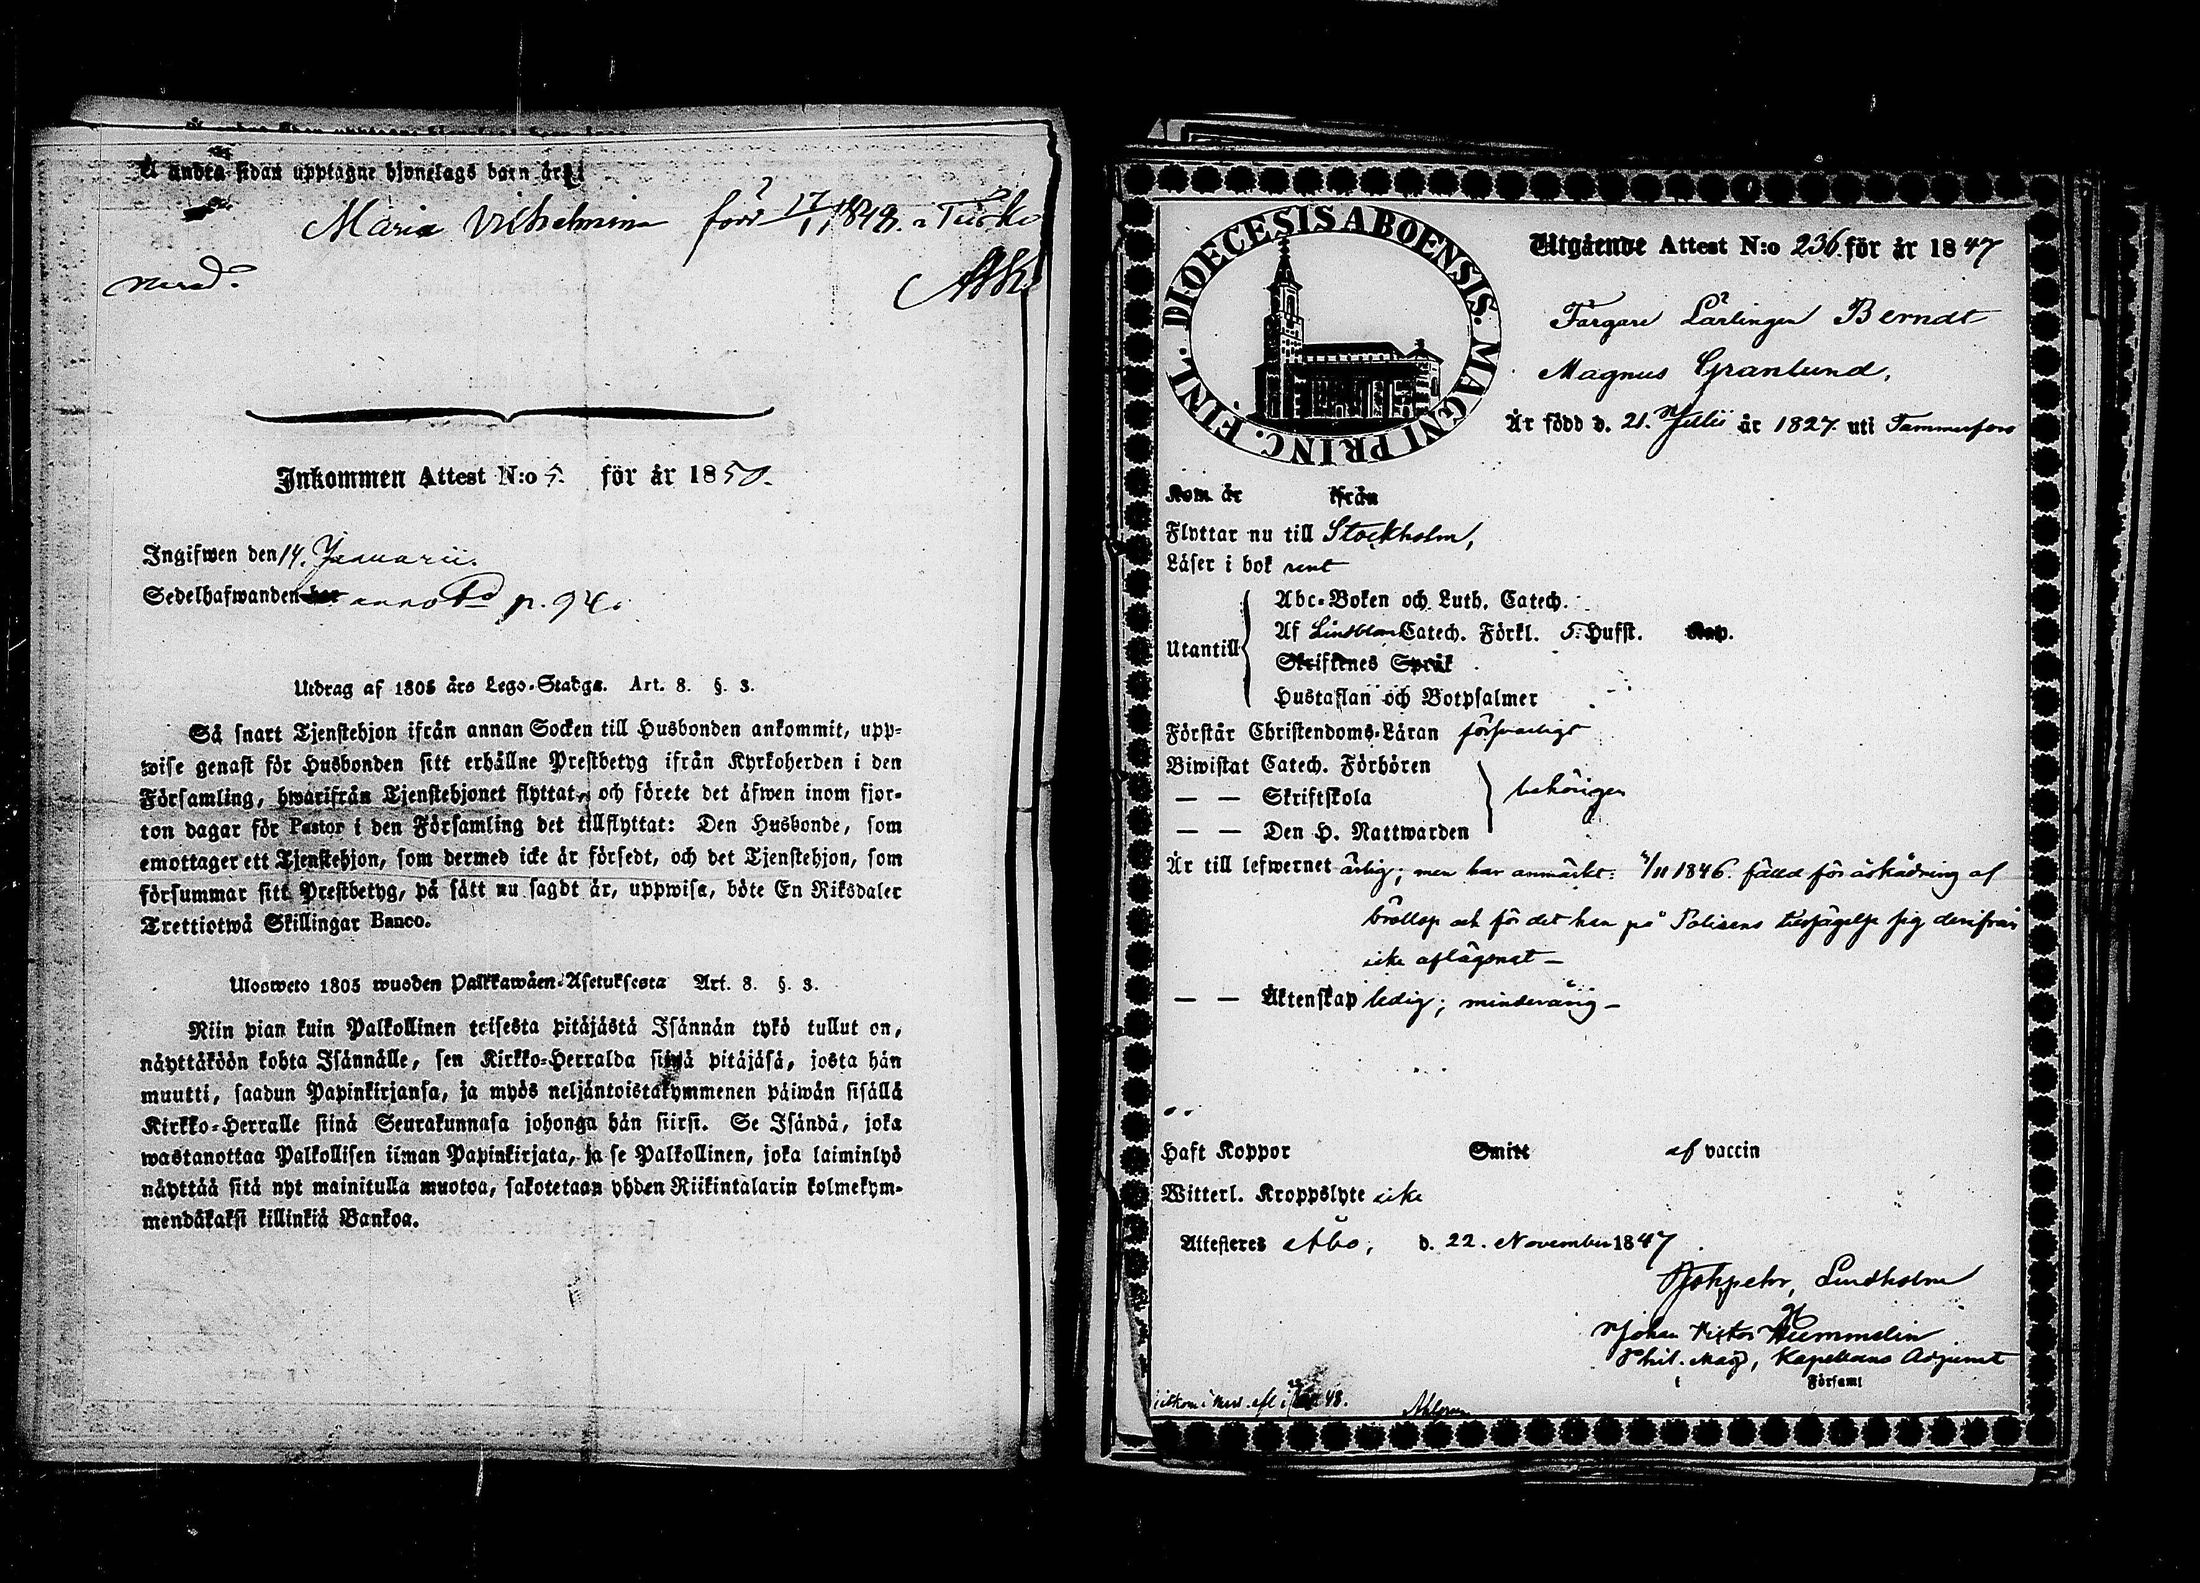 å andra sidan upptagne hjonelags barn äro:
Maria Vilhelmina född 17/11 1848. i Tusko
nerad.
Inkommen Attest N:o 5. för år 1850.
Ingifwen den 14. Januarii.
Sedelhafwanden annot. p. 94.
Utdrag af 1805 års Lego-Stadga. Art. 8. §. 3.
Så snart Tjenstehjon ifrån annan Socken till Husbonden ankommit, upp-
wise genast för Husbonden sitt erhållne Prestbetyg ifrån Kyrkoherden i den
Församling, hwarifrån Tjenstehjonet flyttat, och förete det äfwen inom fjor-
ton dagar för Pastor i den Församling det tillflyttat: Den Husbonde, som
emottager ett Tjenstehjon, som dermed icke är försedt, och det Tjenstehjon, som
försummar sitt Prestbetyg, på sätt nu sagdt är, uppwisa, böte En Riksdaler
Trettiotwå Skillingar Banco.
Ulosweto 1805 wuoden Palkkawäen-Asetuksesta Art. 8. §. 3.
Niin pian kuin Palkollinen toisesta pitäjästä Isännän tykö tullut on,
näyttäköön kohta Isännälle, sen Kirkko-Herralda siinä pitäjäsä, josta hän
muutti, saadun Papinkirjansa, ja myös neljäntoistakymmenen päiwän sisällä
Kirkko-Herralle siinä Seurakunnasa johonga hän siirsi. Se Isändä, joka
wastanottaa Palkollisen ilman Papinkirjata, ja se Palkollinen, joka laiminlyö
näyttää sitä nyt mainitulla muotoa, sakotetaan yhden Riikintalarin kolmekym-
mendäkaksi killinkiä Bankoa.
DIOECESIS ABOENSIS. MAGNI PRINC. FINL.
Utgående Attest N:o 236. för år 1847
Färgare Lärlingen Berndt
Magnus Granlund,
Är född d. 21. Julii år 1827. uti Tammerfors
Kom år ifrån
Flyttar nu till Stockholm,
Läser i bok rent
Utantill
Abc-Boken och Luth. Catech.
Af Lindblom Catech. Förkl. 5. Hufst. Kap.
Skriftenes Språk
Hustaflan och Botpsalmer
Förstår Christendoms-Läran försvarligt
Biwistat Catech. Förhören
— — Skriftskola
behörigen
— — Den H. Nattwarden
Är till lefwernet ärlig; men har anmärkt: /11 1846. fälld för åskådning af
bröllop och för det han på Polisens tillsägelse sig derifrån
icke aflägsnat —
— — Äktenskap ledig; minderårig —
Haft Koppor Smitt af vaccin
Witterl. Kroppslyte icke
Attesteres Åbo, d. 22. November 1847
Lindholm
Johan Victor Hemmelin
Phil. Mag, Kapellans Adjunct
i Församl
48.